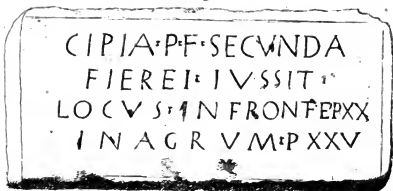 CIPIA·P·F·SECVNDA
FIEREI·IVSSIT·
LOCVS·IN FRONTE P XX
IN AGRVM·P XXV